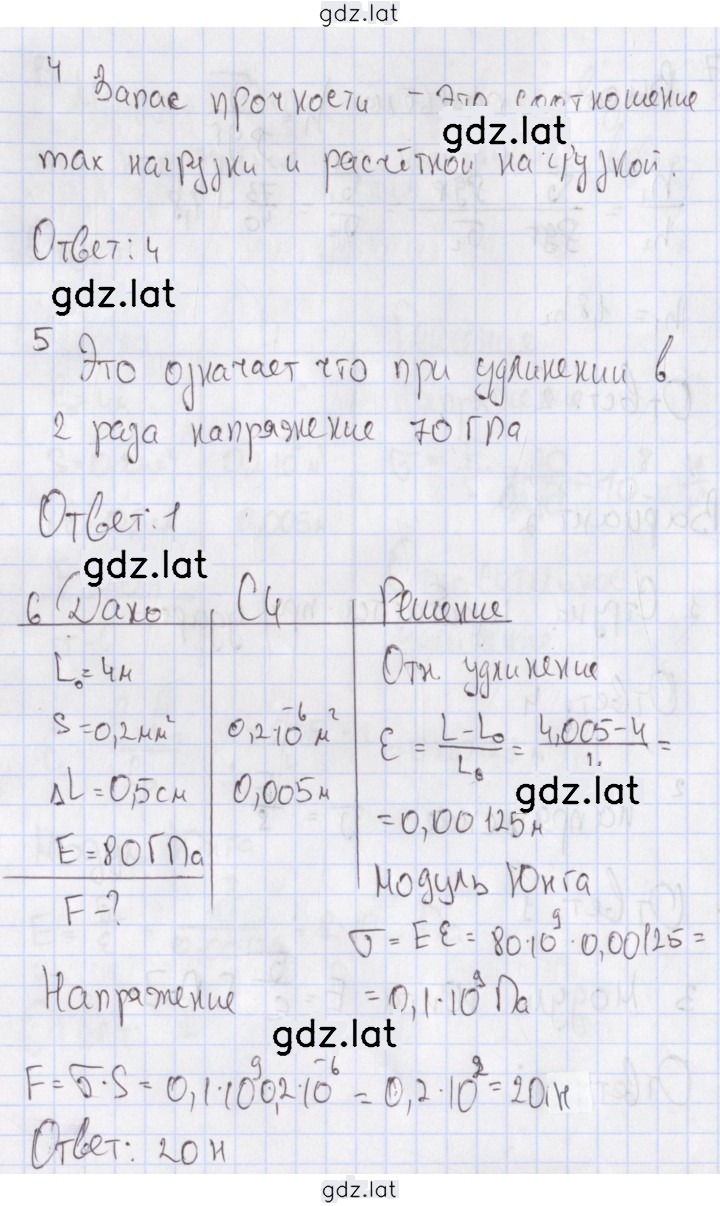 gdz.lat
4 Запас прочности - это соотношение
gdz.lat
max нагрузки и расчётной нагрузкой.
Ответ: 4
gdz.lat
5 Это означает что при удлинении в
2 раза напряжение 70 ГПа
Ответ: 1
gdz.lat
6 Дано СИ Решение
L₀ = 4м Отн удлинение
S = 0,2мм² 0,2·10⁻⁶ м² Ɛ = (L - L₀)/L₀ = (4,005 - 4)/ =
ΔL = 0,5см 0,005м
gdz.lat
= 0,00125м
E = 80 ГПа Модуль Юнга
F - ? σ = EƐ = 80·10⁹·0,00125 =
Напряжение = 0,1·10⁹ Па
gdz.lat
F = σ·S = 0,1·10⁹0,2·10⁻⁶ = 0,2·10² = 20 н
Ответ: 20 н
gdz.lat